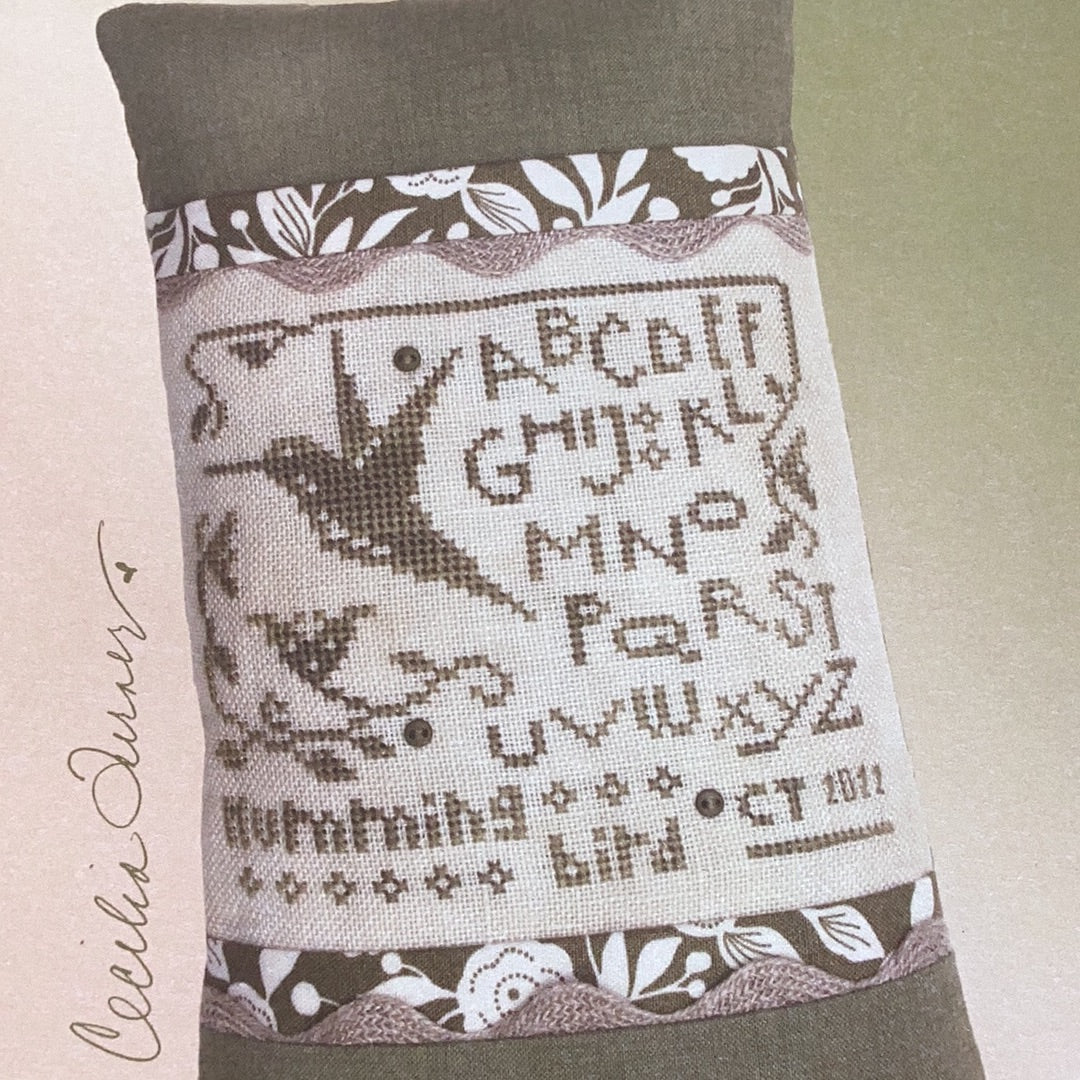 ABCDEF
GHIJKL
MNO
PQRST
UVWXYZ
Humming
bird CT
Cecilia Turner